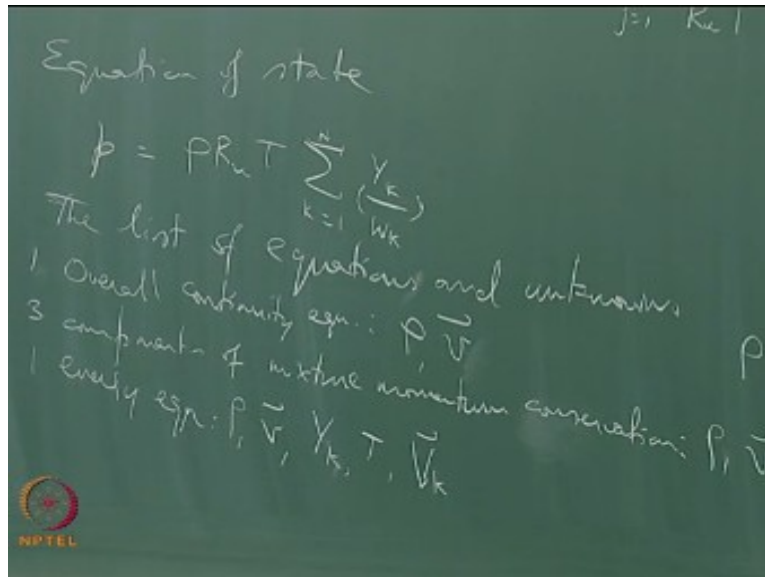 j=1 Ru T
Equation of state
p = ρRuT ∑ k=1 N (Yk/Wk)
The list of equations and unknowns
1 Overall continuity eqn.: ρ, v⃗
3 components of mixture momentum conservation: ρ, v⃗
1 energy eqn.: ρ, v⃗, Yk, T, V⃗k
ρ
NPTEL